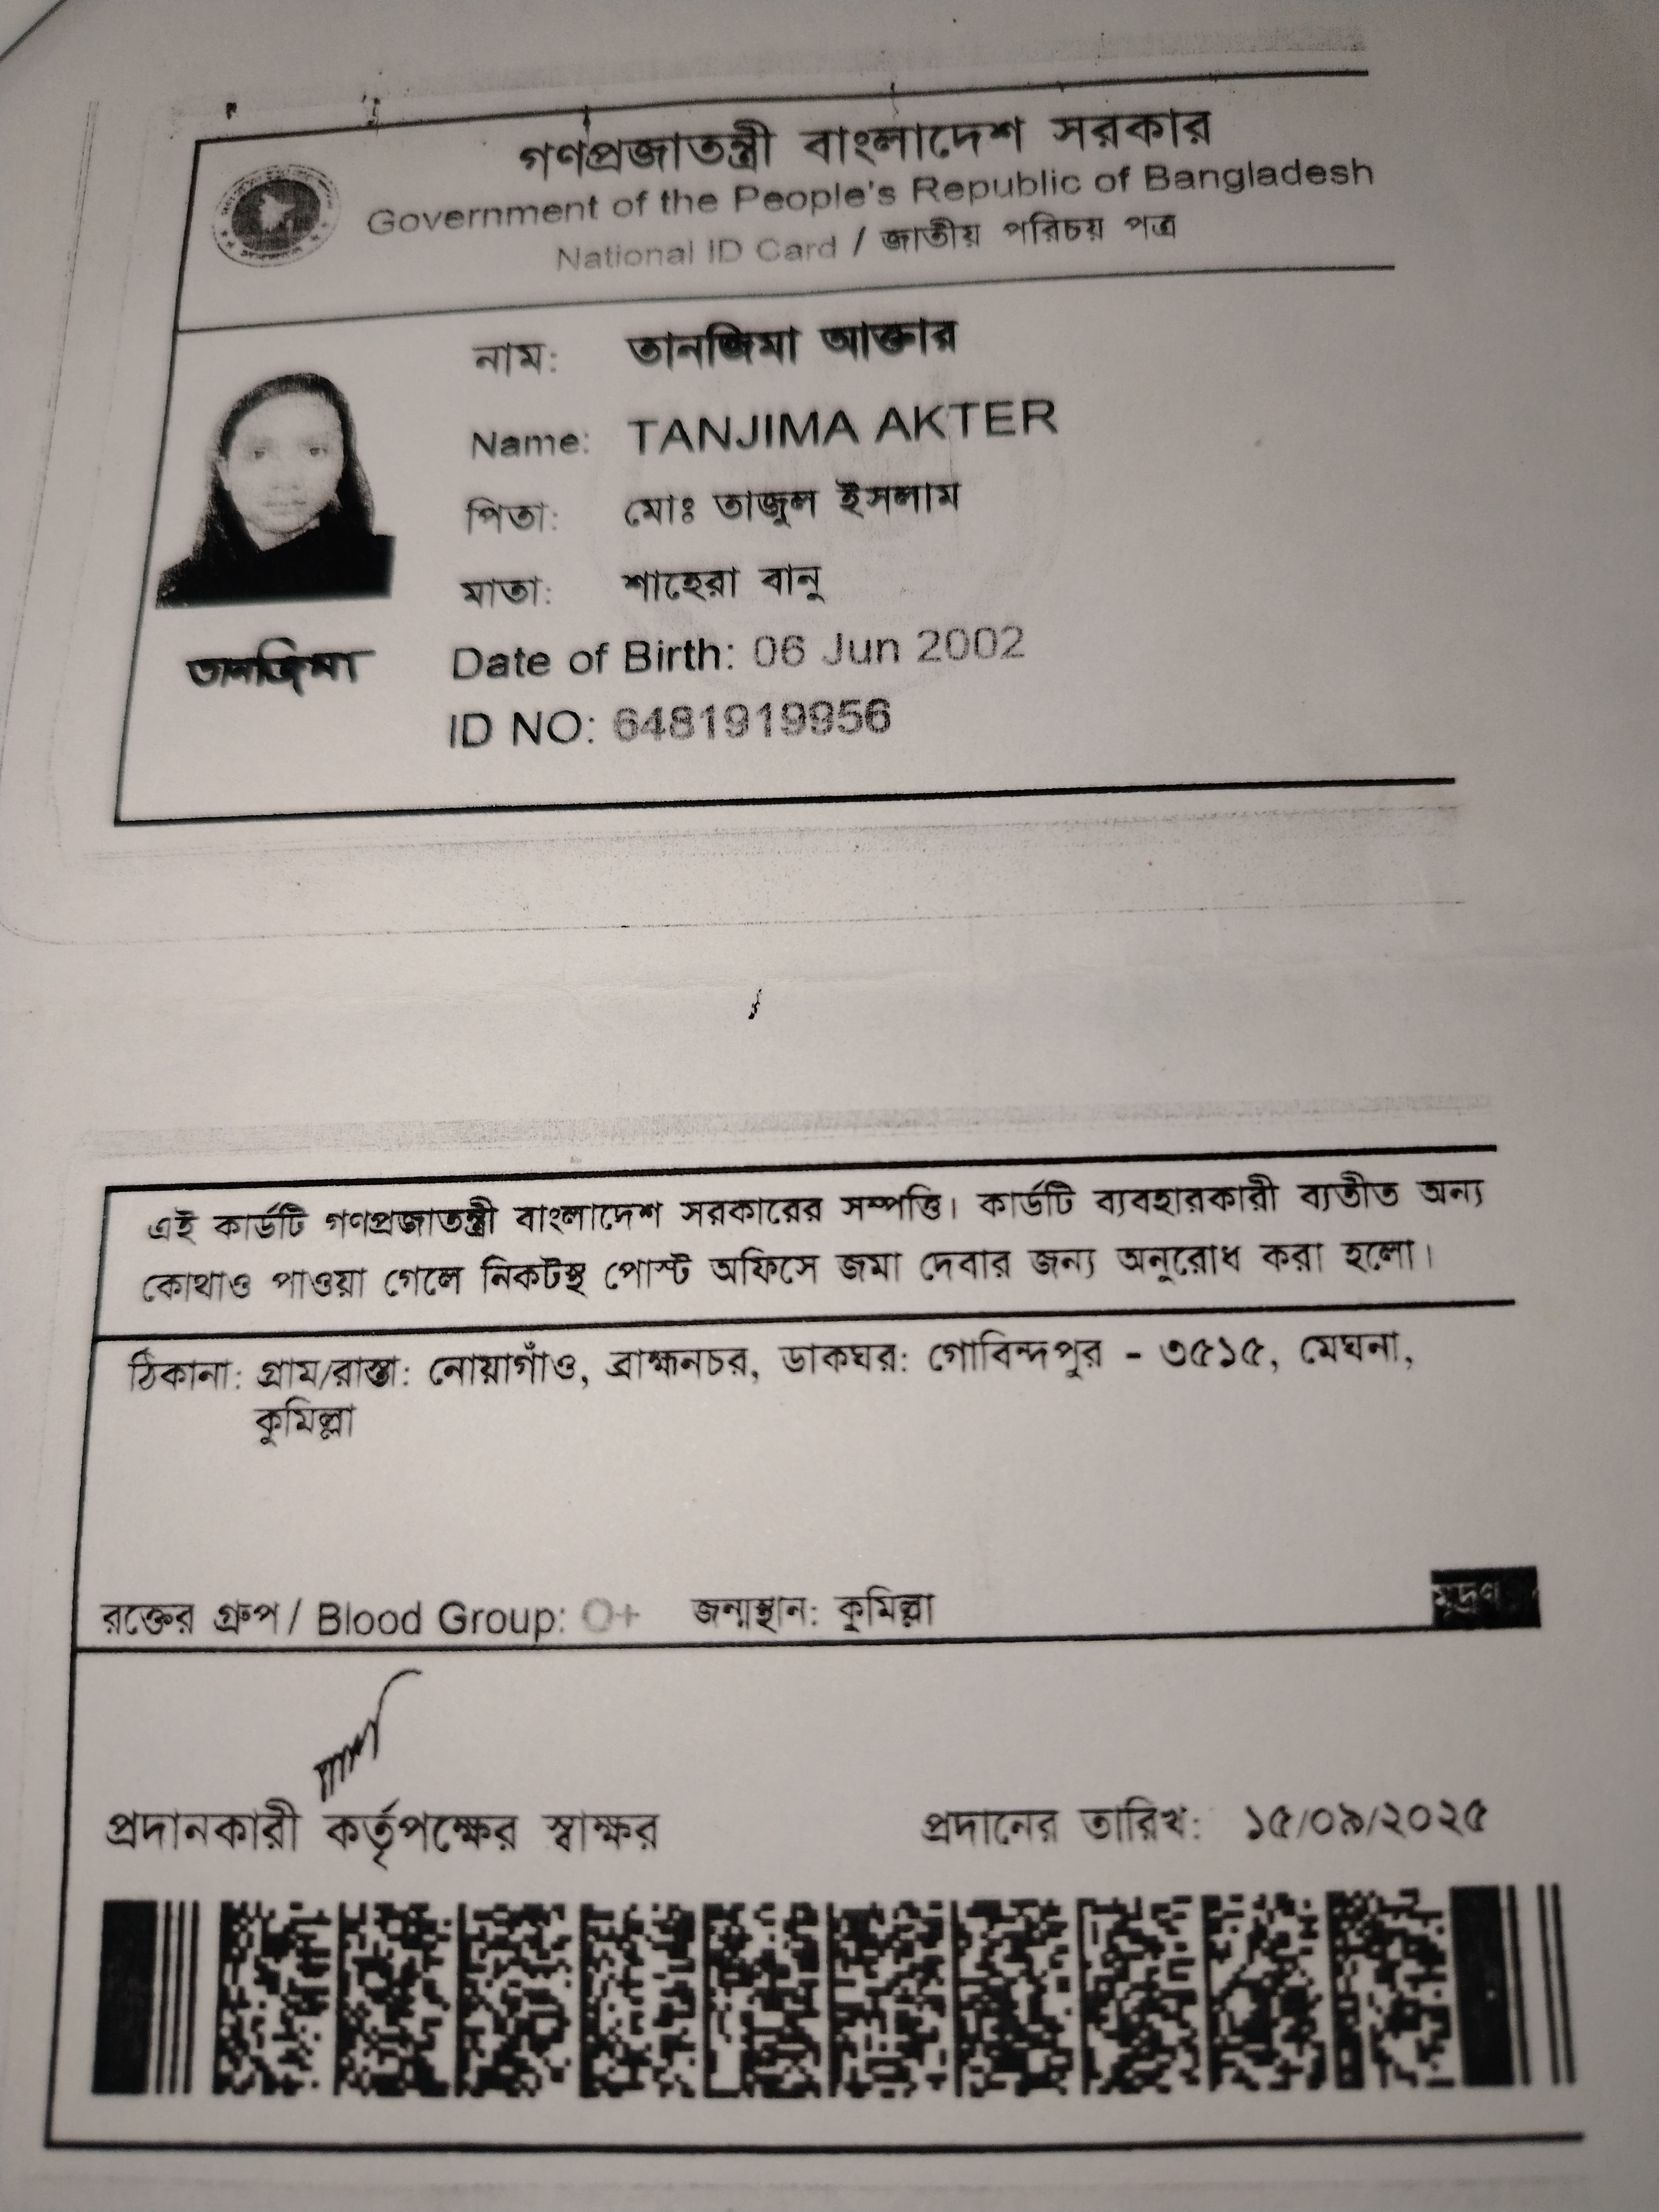 গণপ্রজাতন্ত্রী বাংলাদেশ সরকার
Government of the People's Republic of Bangladesh
National ID Card / জাতীয় পরিচয় পত্র
নাম: তানজিমা আক্তার
Name: TANJIMA AKTER
পিতা: মোঃ তাজুল ইসলাম
মাতা: শাহেরা বানু
তানজিমা
Date of Birth: 06 Jun 2002
ID NO: 6481919956
এই কার্ডটি গণপ্রজাতন্ত্রী বাংলাদেশ সরকারের সম্পত্তি। কার্ডটি ব্যবহারকারী ব্যতীত অন্য
কোথাও পাওয়া গেলে নিকটস্থ পোস্ট অফিসে জমা দেবার জন্য অনুরোধ করা হলো।
ঠিকানা: গ্রাম/রাস্তা: নোয়াগাঁও, ব্রাহ্মনচর, ডাকঘর: গোবিন্দপুর - ৩৫১৫, মেঘনা,
কুমিল্লা
রক্তের গ্রুপ / Blood Group: O+ জন্মস্থান: কুমিল্লা মুদ্রণ
প্রদানকারী কর্তৃপক্ষের স্বাক্ষর প্রদানের তারিখ: ১৫/০৯/২০২৫